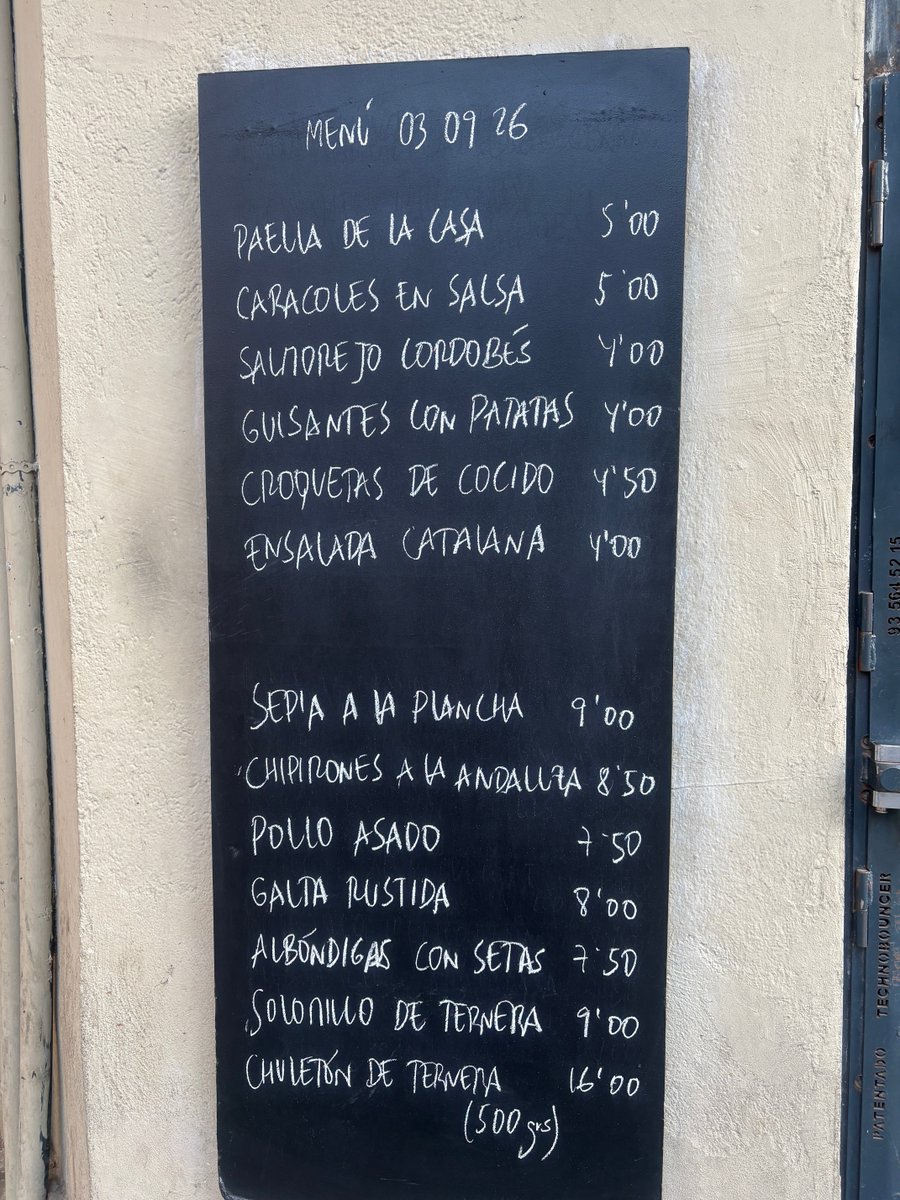 MENÚ 03 09 26
PAELLA DE LA CASA 5'00
CARACOLES EN SALSA 5'00
SALMOREJO CORDOBÉS 4'00
GUISANTES CON PATATAS 4'00
CROQUETAS DE COCIDO 4'50
ENSALADA CATALANA 4'00
SEPIA A LA PLANCHA 9'00
CHIPIRONES A LA ANDALUZA 8'50
POLLO ASADO 7'50
GALTA RUSTIDA 8'00
ALBÓNDIGAS CON SETAS 7'50
SOLOMILLO DE TERNERA 9'00
CHULETÓN DE TERNERA 16'00
(500 grs)
93 564 52 15
TECHNOBOUNCER
PATENTADO